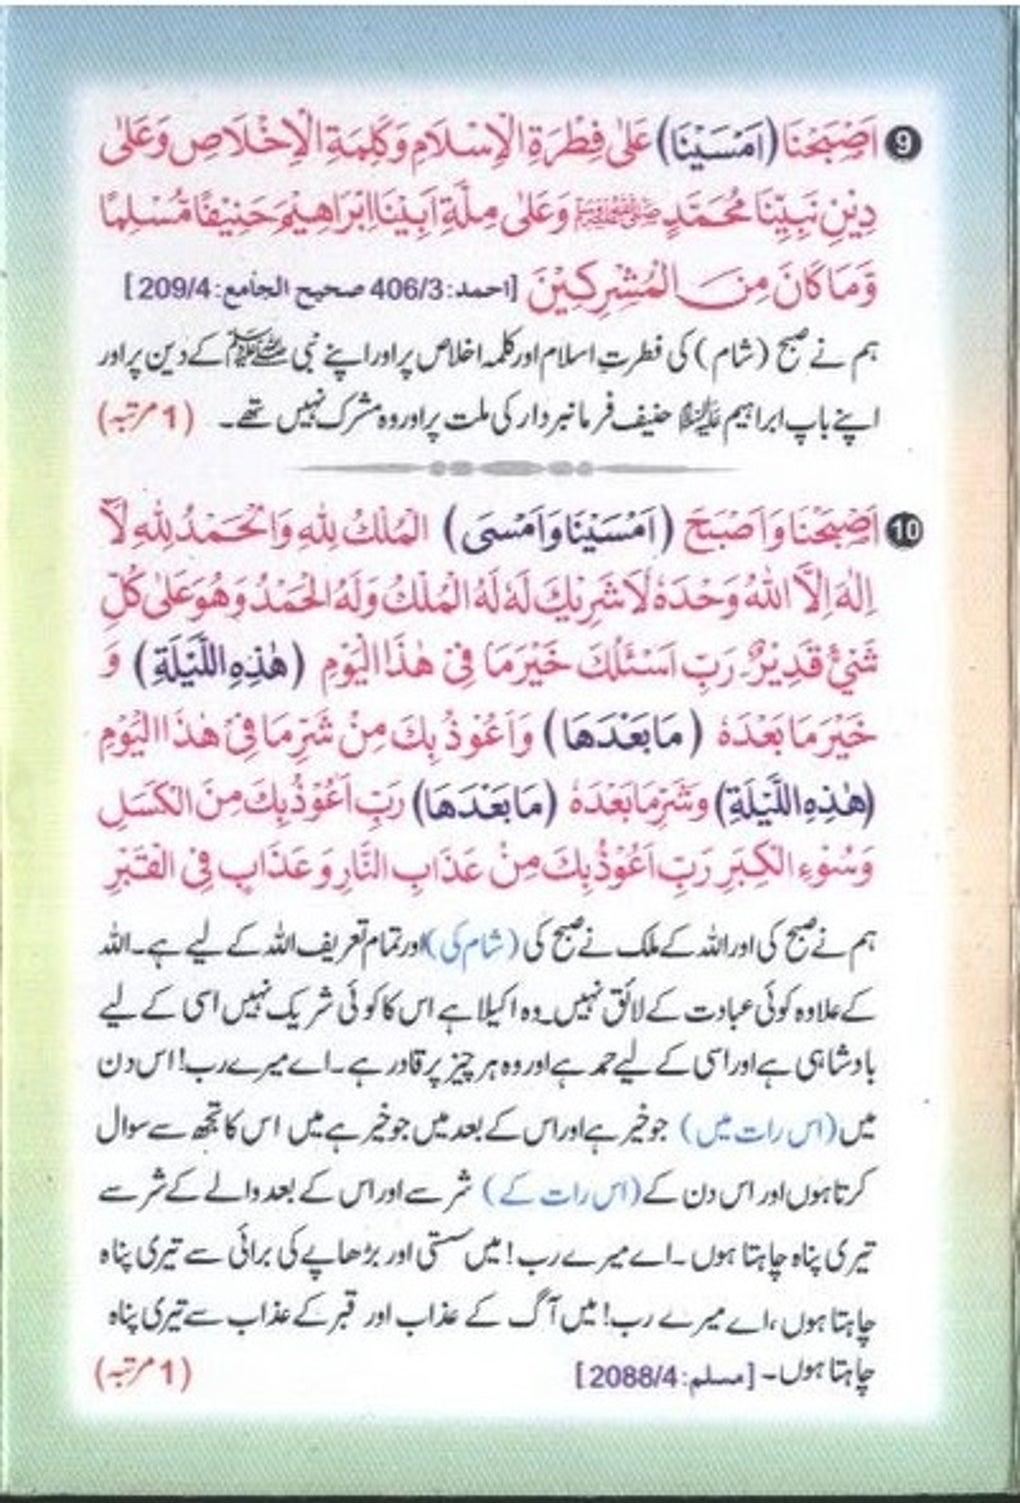 9 اَصْبَحْنَا (اَمْسَيْنَا) عَلٰى فِطْرَةِ الْاِسْلَامِ وَكَلِمَةِ الْاِخْلَاصِ وَعَلٰى
دِيْنِ نَبِيِّنَا مُحَمَّدٍ ﷺ وَعَلٰى مِلَّةِ اَبِيْنَا اِبْرَاهِيْمَ حَنِيْفًا مُّسْلِمًا
وَّمَا كَانَ مِنَ الْمُشْرِكِيْنَ [احمد:406/3 صحيح الجامع:209/4]
ہم نے صبح (شام) کی فطرتِ اسلام اور کلمہ اخلاص پر اور اپنے نبی ﷺ کے دین پر اور
اپنے باپ ابراہیم علیہ السلام حنیف فرمانبردار کی ملت پر اور وہ مشرک نہیں تھے۔ (1 مرتبہ)
10 اَصْبَحْنَا وَاَصْبَحَ (اَمْسَيْنَا وَاَمْسَى) الْمُلْكُ لِلّٰهِ وَالْحَمْدُ لِلّٰهِ لَآ
اِلٰهَ اِلَّا اللّٰهُ وَحْدَهٗ لَا شَرِيْكَ لَهٗ لَهُ الْمُلْكُ وَلَهُ الْحَمْدُ وَهُوَ عَلٰى كُلِّ
شَيْئٍ قَدِيْرٌ۔ رَبِّ اَسْئَلُكَ خَيْرَ مَا فِيْ هٰذَا الْيَوْمِ (هٰذِهِ اللَّيْلَةِ) وَ
خَيْرَ مَا بَعْدَهٗ (مَا بَعْدَهَا) وَاَعُوْذُ بِكَ مِنْ شَرِّ مَا فِيْ هٰذَا الْيَوْمِ
(هٰذِهِ اللَّيْلَةِ) وَشَرِّ مَا بَعْدَهٗ (مَا بَعْدَهَا) رَبِّ اَعُوْذُ بِكَ مِنَ الْكَسَلِ
وَسُوْءِ الْكِبَرِ رَبِّ اَعُوْذُ بِكَ مِنْ عَذَابِ النَّارِ وَعَذَابٍ فِى الْقَبْرِ
ہم نے صبح کی اور اللہ کے ملک نے صبح کی (شام کی) اور تمام تعریف اللہ کے لیے ہے۔ اللہ
کے علاوہ کوئی عبادت کے لائق نہیں۔ وہ اکیلا ہے اس کا کوئی شریک نہیں اسی کے لیے
بادشاہی ہے اور اسی کے لیے حمد ہے اور وہ ہر چیز پر قادر ہے۔ اے میرے رب! اس دن
میں (اس رات میں) جو خیر ہے اور اس کے بعد میں جو خیر ہے میں اس کا تجھ سے سوال
کرتا ہوں اور اس دن کے (اس رات کے) شر سے اور اس کے بعد والے کے شر سے
تیری پناہ چاہتا ہوں۔ اے میرے رب! میں سستی اور بڑھاپے کی برائی سے تیری پناہ
چاہتا ہوں، اے میرے رب! میں آگ کے عذاب اور قبر کے عذاب سے تیری پناہ
چاہتا ہوں۔ [مسلم:2088/4] (1 مرتبہ)